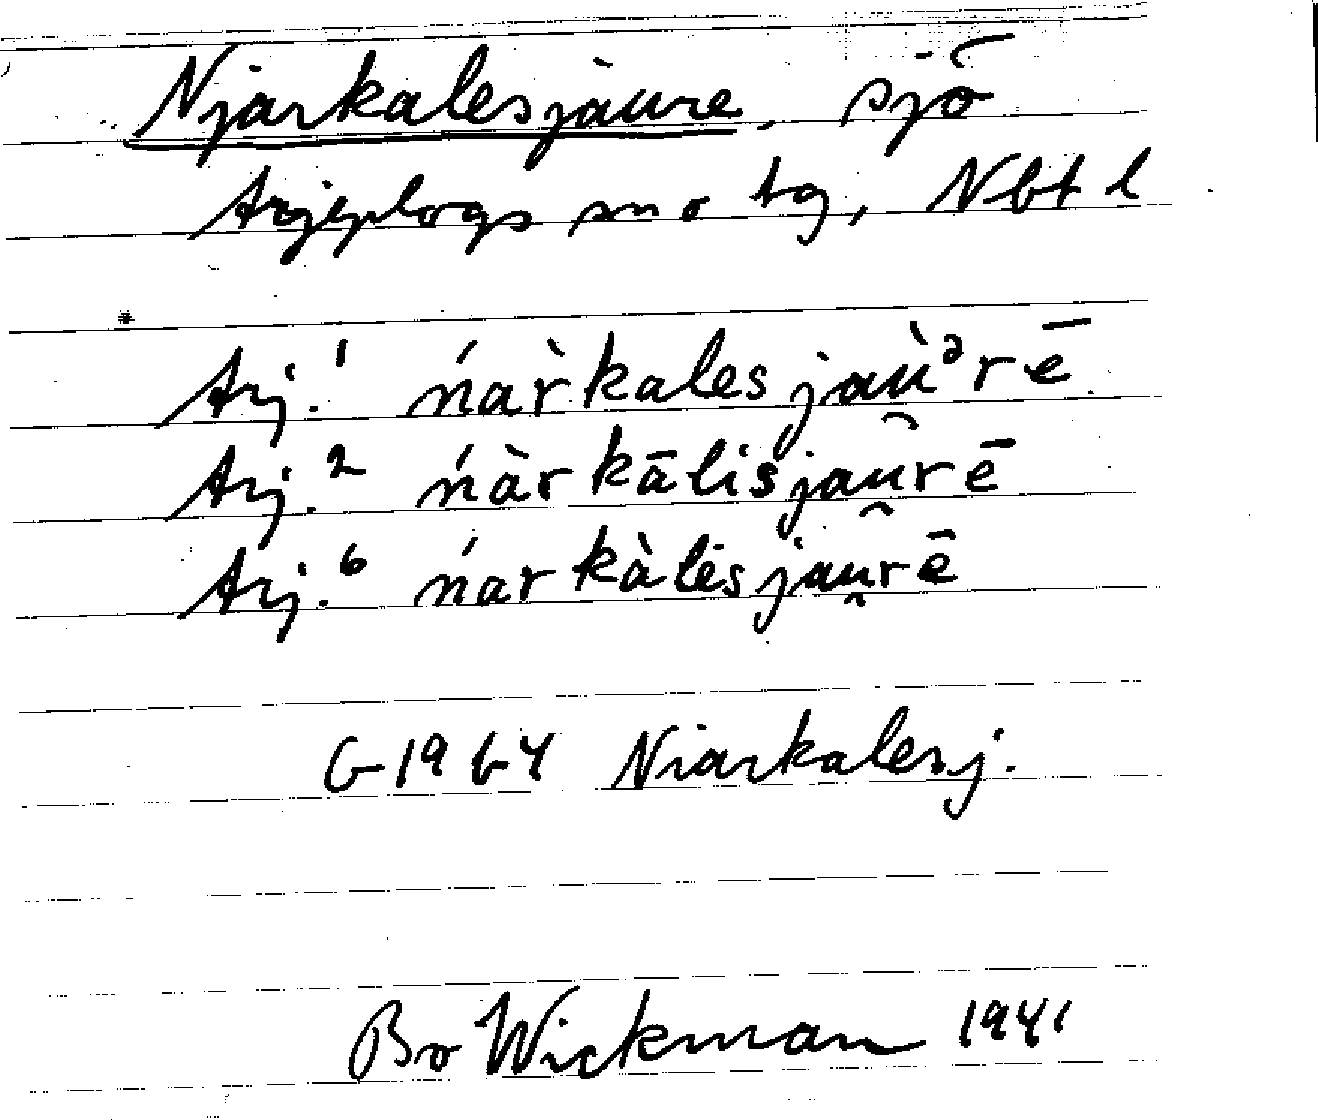 Njarkalesjaure, sjö
Arjeplogs sn o tg, Nbt l
Arj.¹ ńàr̀kalesjaù̯ᵊrē
Arj.² ńàrkālisjau̯rē
Arj.⁶ ńarkàlėsjau̯rē
G 1964 Niarkalesj.
Bo Wickman 1941